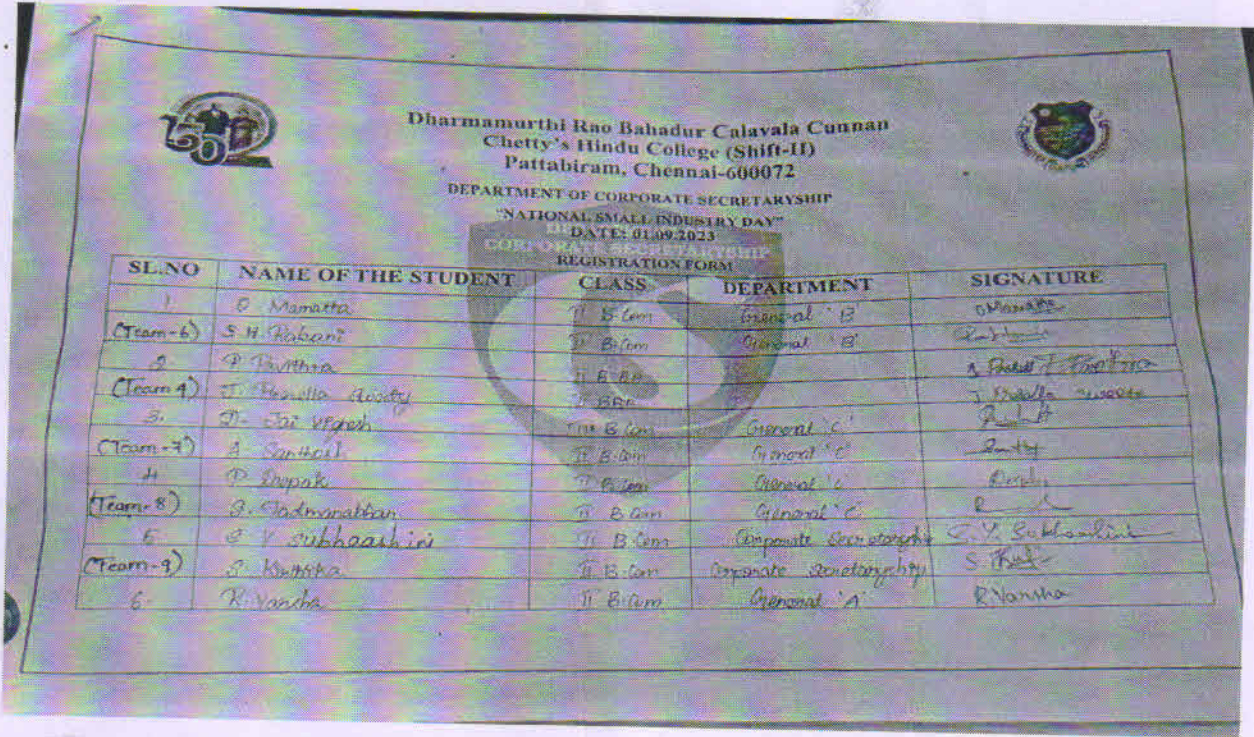 150
Dharmamurthi Rao Bahadur Calavala Cunnan
Chetty's Hindu College (Shift-II)
Pattabiram, Chennai-600072
DEPARTMENT OF CORPORATE SECRETARYSHIP
"NATIONAL SMALL INDUSTRY DAY"
DATE: 01.09.2023
CORPORATE SECRETARYSHIP
REGISTRATION FORM
SL.NO NAME OF THE STUDENT CLASS DEPARTMENT SIGNATURE
1. Mamatta II B.Com General 'B'
(Team-6) S.H. Rabani II B.Com General 'B'
2. P. Pavithra II B.BA
(Team 4) J. II BBA
3. Jai Vignesh B.Com General 'C'
(Team-7) A. Santhosh II B.Com General 'C'
4 P. Deepak II B.Com General 'C'
(Team-8) Padmanabhan II B.Com General 'C'
5 S. V. Subhaashini II B.Com Corporate Secretaryship S. V. Subhashini
(Team-9) S. II B.Com Corporate Secretaryship S
6. R. Varsha II B.Com General 'A' R. Varsha